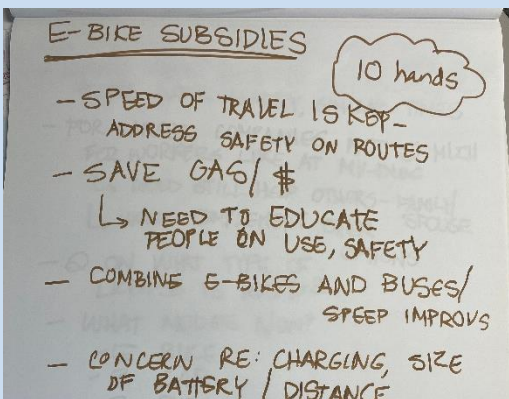 E-BIKE SUBSIDIES
10 hands
- SPEED OF TRAVEL IS KEY-
ADDRESS SAFETY ON ROUTES
- SAVE GAS/$
↳ NEED TO EDUCATE
PEOPLE ON USE, SAFETY
- COMBINE E-BIKES AND BUSES/
SPEED IMPROVS
- CONCERN RE: CHARGING, SIZE
OF BATTERY / DISTANCE